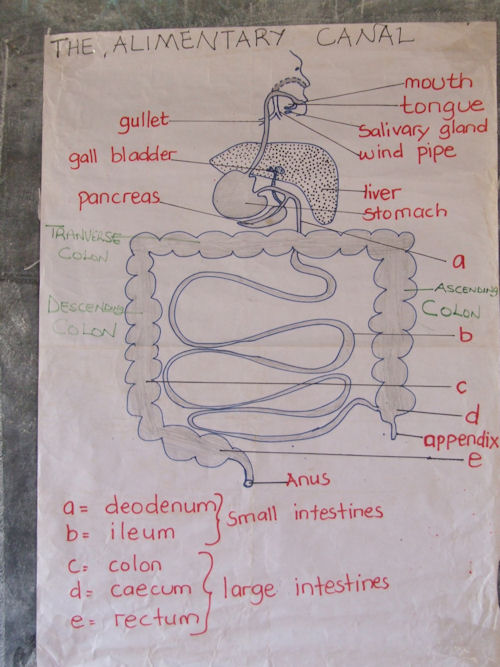 THE, ALIMENTARY CANAL
mouth
tongue
gullet
Salivary gland
gall bladder
wind pipe
pancreas
liver
stomach
TRANVERSE
COLON
a
ASCENDING
COLON
DESCENDING
COLON
b
c
d
appendix
e
Anus
a= deodenum
b= ileum
Small intestines
c= colon
d= caecum
e= rectum
large intestines